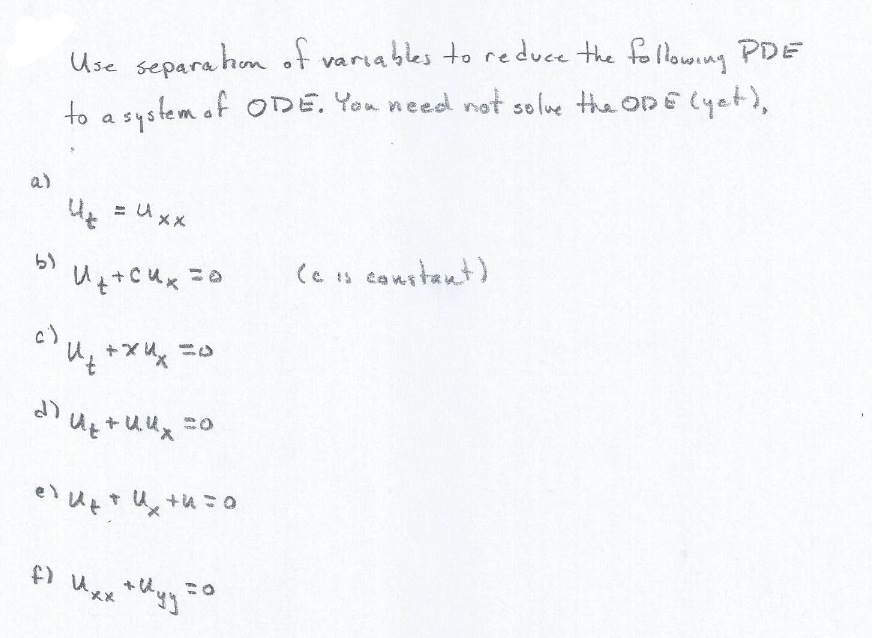 Use separation of variables to reduce the following PDE
to a system of ODE. You need not solve the ODE (yet).
a)
u_t = u_xx
b) u_t + c u_x = 0 (c is constant)
c) u_t + x u_x = 0
d) u_t + u.u_x = 0
e) u_t + u_x + u = 0
f) u_xx + u_yy = 0